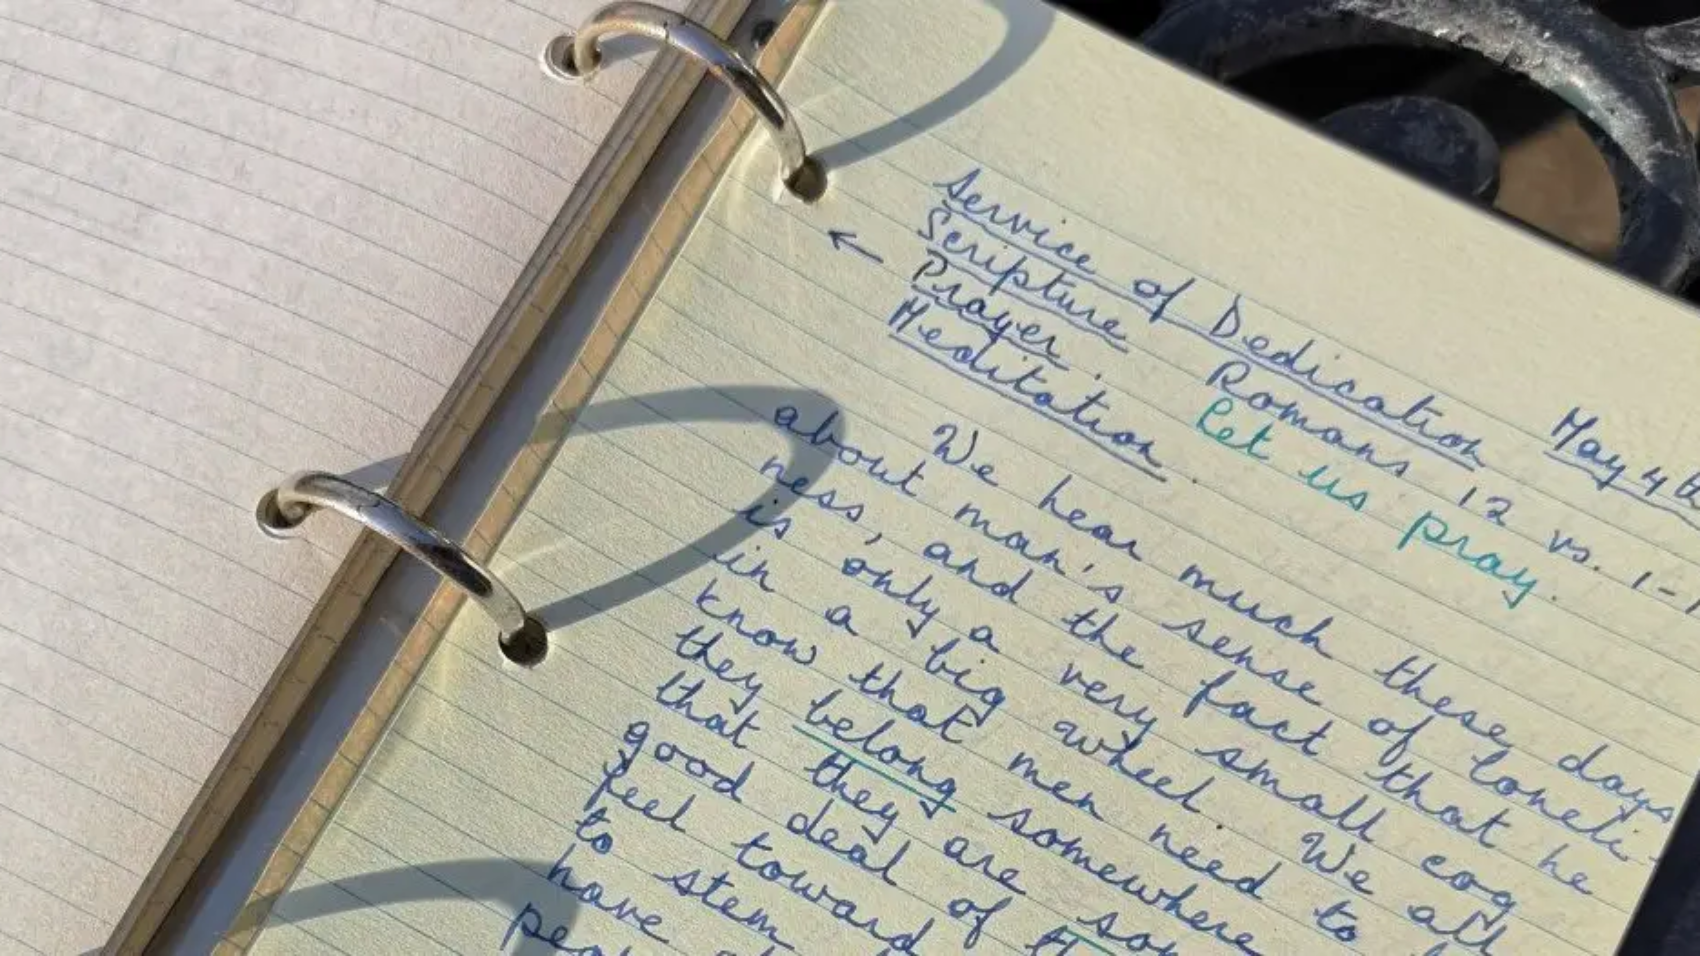 Service of Dedication May 4th
Scripture Romans 12 vs. 1-
Prayer. Let us pray.
Meditation.
We hear much these days
about man's sense of loneli-
ness, and the fact that he
is only a very small cog
in a big wheel. We all
know that men need to
they belong somewhere
that they are
good deal of
feel toward
to stem
have